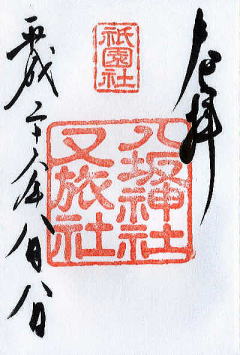 奉拝
祇園社
八坂神社
又旅社
平成二十年月日